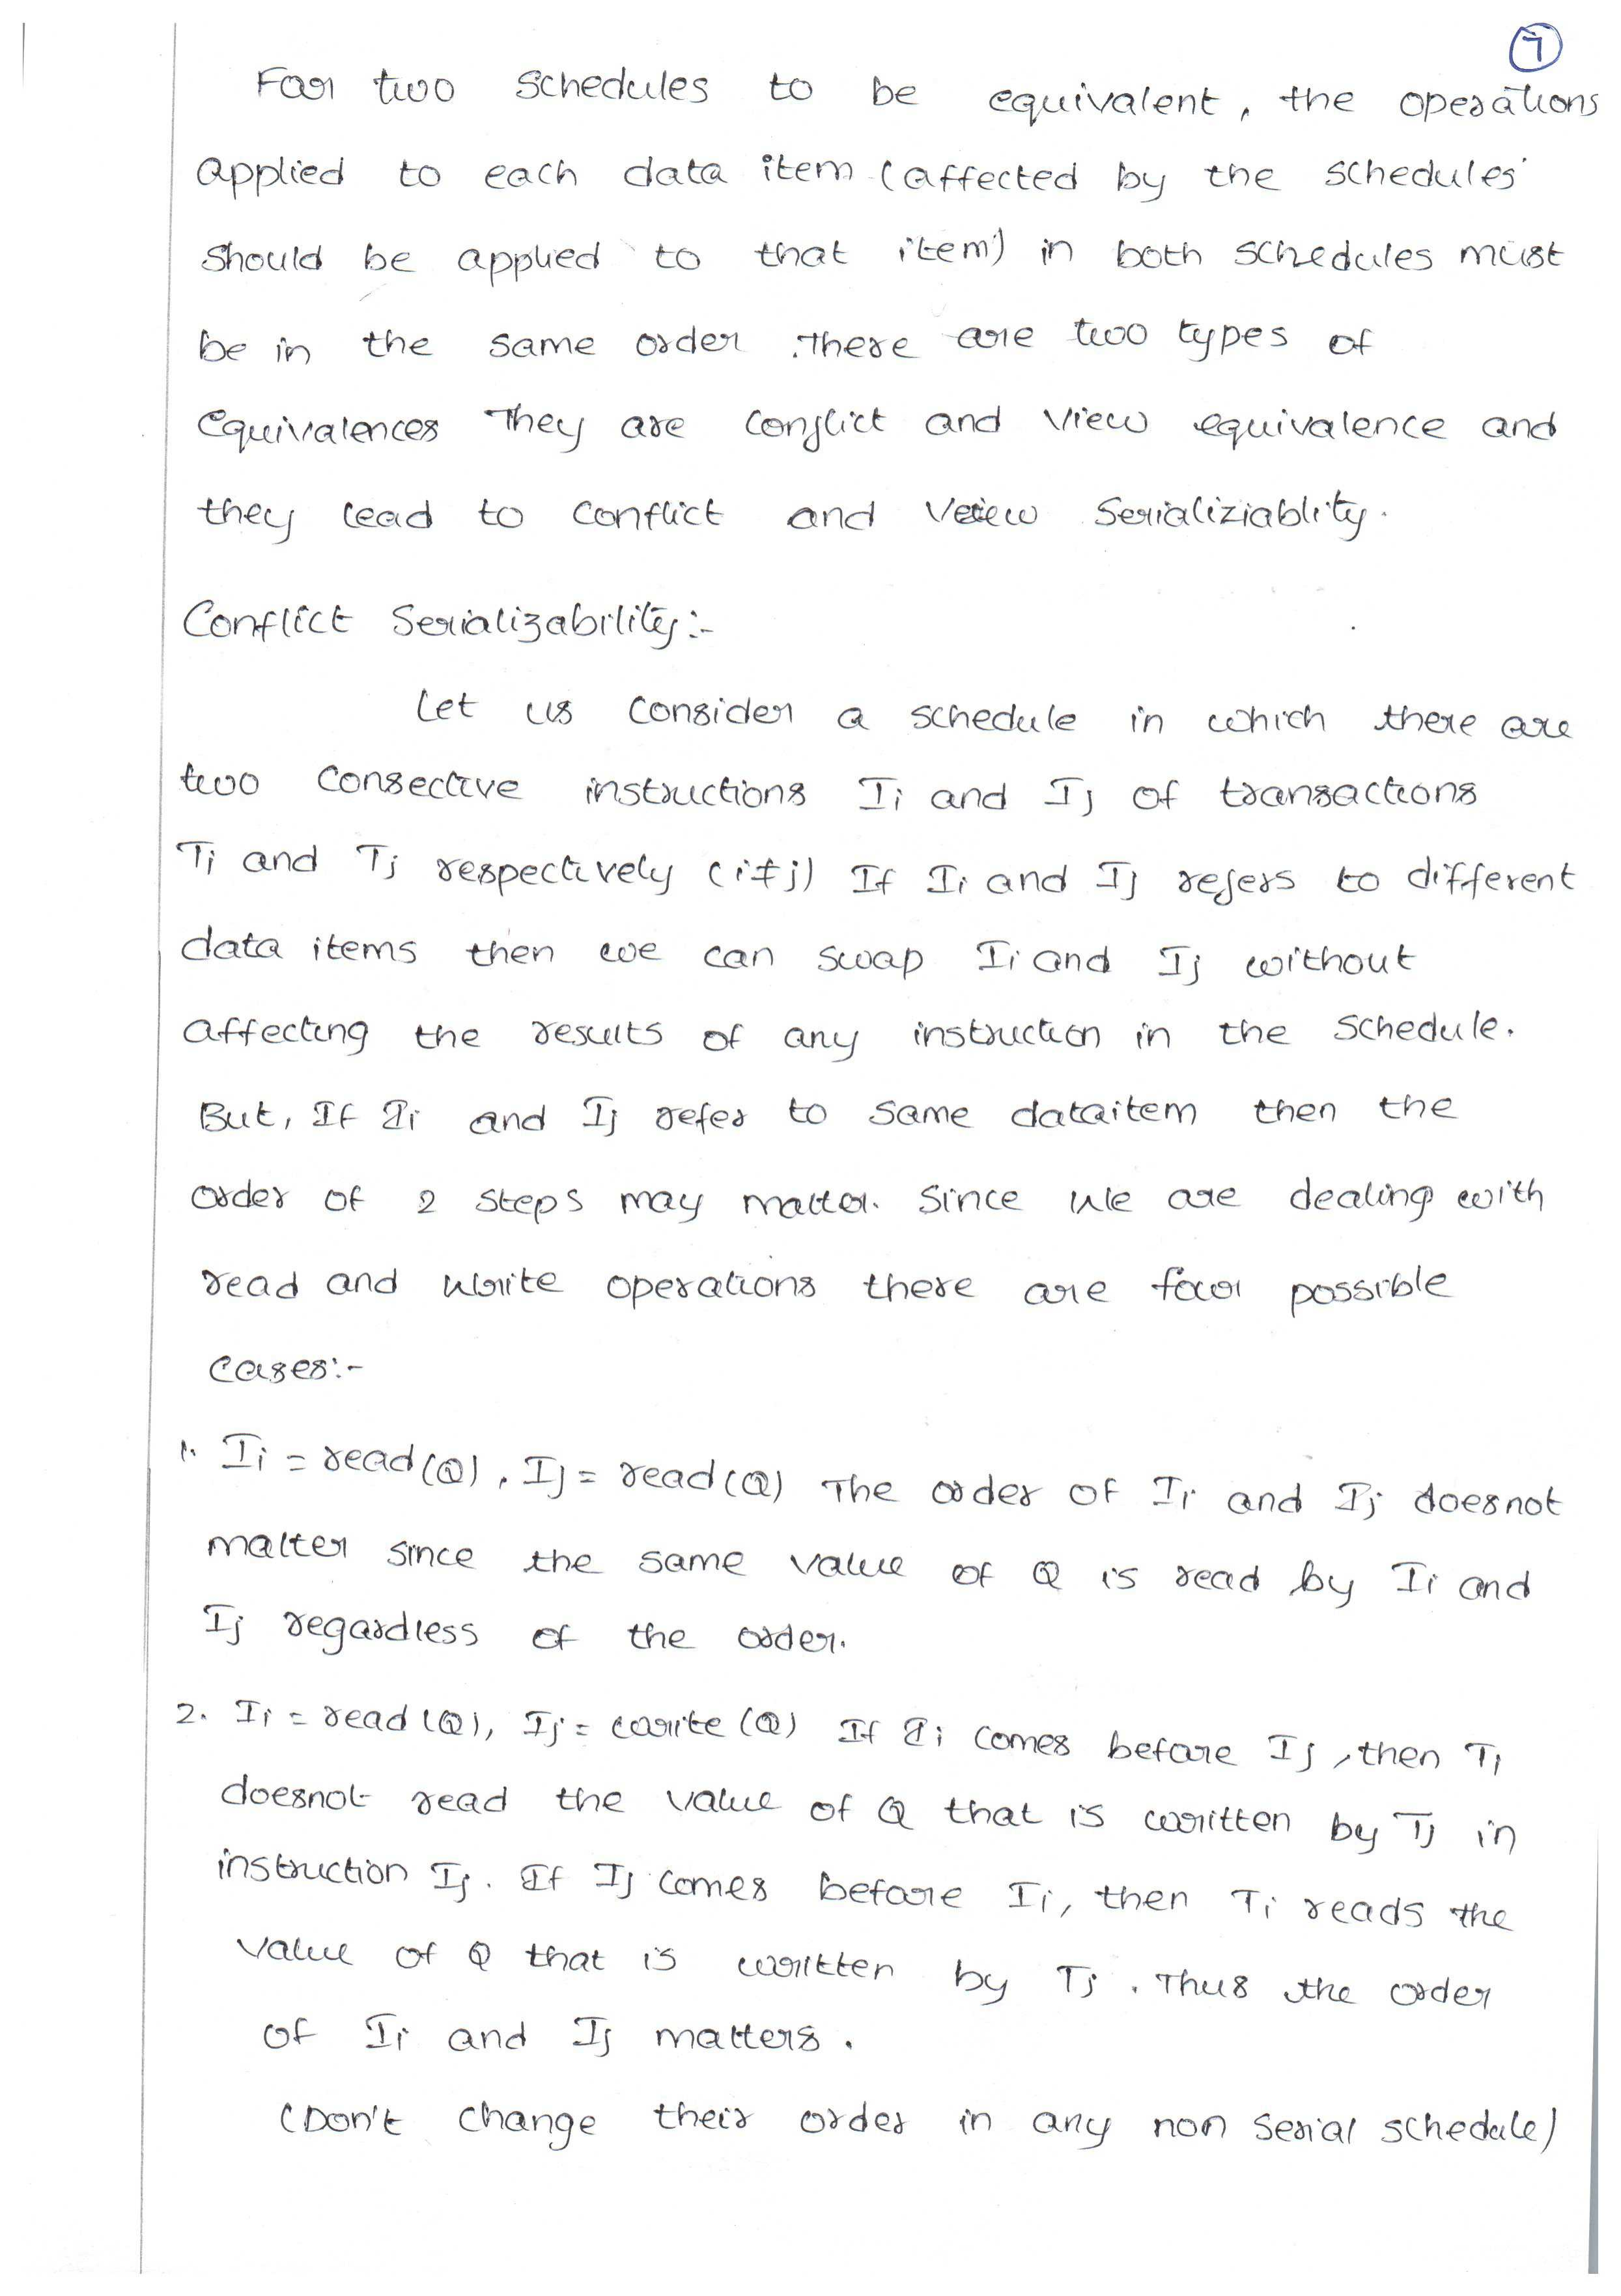 7
For two schedules to be equivalent, the operations
applied to each data item (affected by the schedules
should be applied to that item) in both schedules must
be in the same order. There are two types of
equivalences They are conflict and view equivalence and
they lead to conflict and veiew Serializiablity.
Conflict Serializability:-
Let us consider a schedule in which there are
two consective instructions Ii and Ij of transactions
Ti and Tj respectively (i≠j) If Ii and Ij refers to different
data items then we can swap Ii and Ij without
affecting the results of any instruction in the schedule.
But, If Ii and Ij refer to same dataitem then the
order of 2 steps may matter. Since we are dealing with
read and write operations there are four possible
cases:-
1. Ii = read(Q), Ij = read(Q) The order of Ii and Ij doesnot
matter since the same value of Q is read by Ii and
Ij regardless of the order.
2. Ii = read(Q), Ij = write(Q) If Ii comes before Ij, then Ti
doesnot read the value of Q that is written by Tj in
instruction Ij. If Ij comes before Ii, then Ti reads the
value of Q that is written by Tj. Thus the order
of Ii and Ij matters.
(Don't change their order in any non serial schedule)